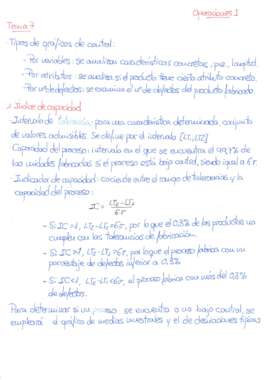 Operaciones I
Tema 7
Tipos de gráficos de control:
- Por variables: se analizan características concretas, p.ej., longitud.
- Por atributos: se analiza si el producto tiene cierto atributo concreto.
- Por nº de defectos: se examina el nº de defectos del producto fabricado.
1. Índice de capacidad
· Intervalo de tolerancia: para una característica determinada, conjunto
de valores admisibles. Se define por el intervalo [LT₁, LT₂]
· Capacidad del proceso: intervalo en el que se encuentra el 99,7% de
las unidades fabricadas si el proceso está bajo control, siendo igual a 6σ.
· Indicador de capacidad: cociente entre el rango de tolerancias y la
capacidad del proceso:
IC = (LT₂ - LT₁) / 6σ
- Si IC=1, LT₂-LT₁=6σ, por lo que el 0,3% de los productos no
cumplen con las tolerancias de fabricación.
- Si IC>1, LT₂-LT₁>6σ, por lo que el proceso fabrica con un
porcentaje de defectos inferior a 0,3%
- Si IC<1, LT₂-LT₁<6σ, el proceso fabrica con más del 0,3%
de defectos.
Para determinar si un proceso se encuentra o no bajo control, se
empleará el gráfico de medias muestrales y el de desviaciones típicas